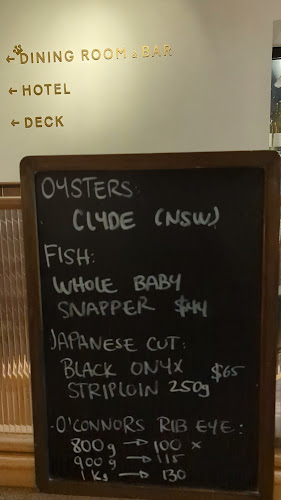 ← DINING ROOM & BAR
← HOTEL
← DECK
OYSTERS:
CLYDE (NSW)
FISH:
WHOLE BABY
SNAPPER $44
JAPANESE CUT:
BLACK ONYX $65
STRIPLOIN 250g
-O'CONNORS RIB EYE:
800g → 100 x
900g → 115
1 Kg → 130